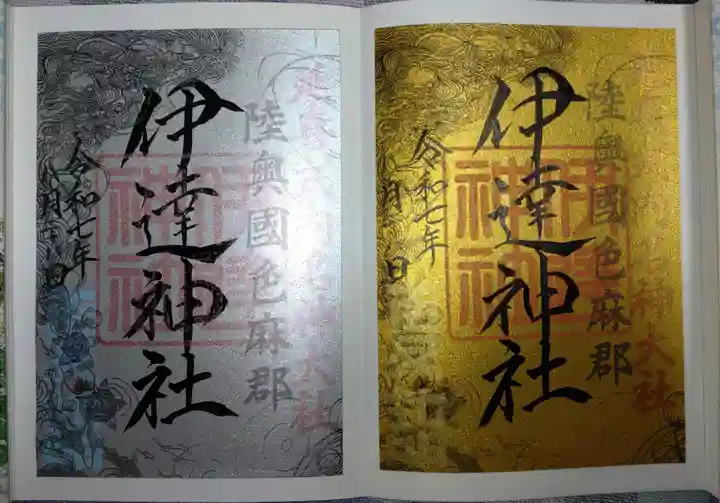 神大社
陸奥國色麻郡
伊達神社
令和七年
月 日
神大社
陸奥國色麻郡
伊達神社
令和七年
月 日